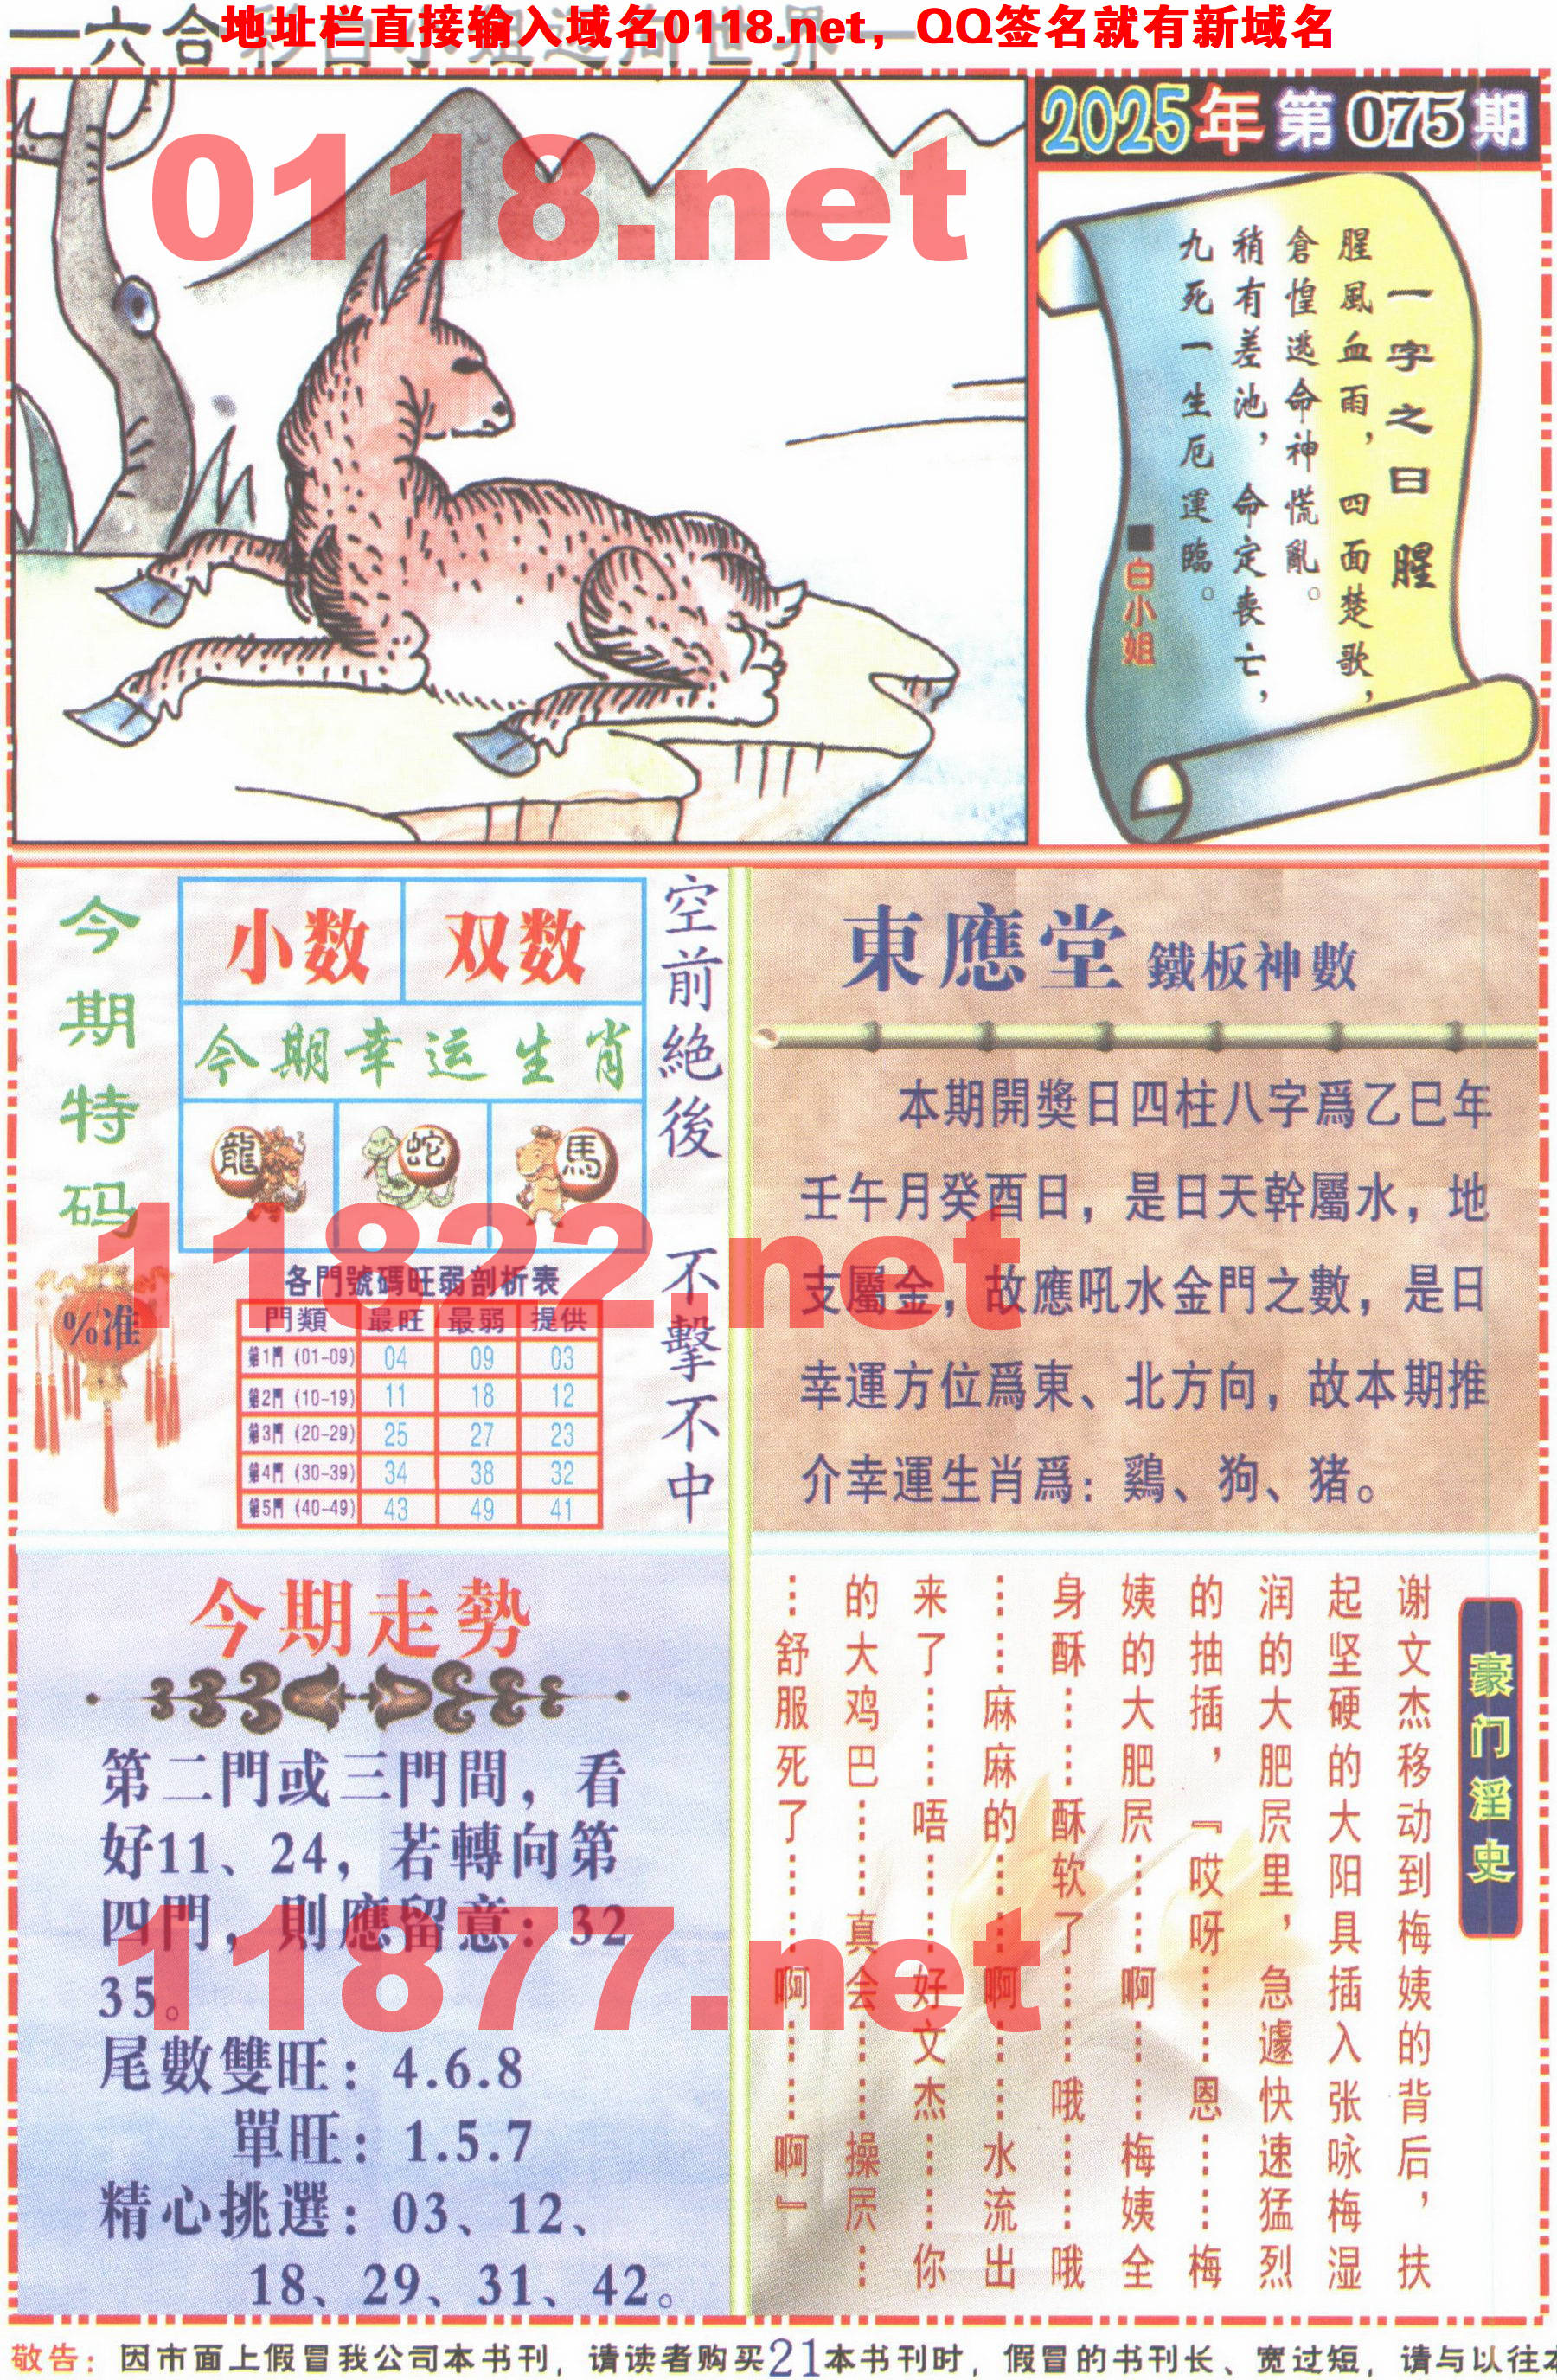 地址栏直接输入域名0118.net，QQ签名就有新域名
一六合彩白小姐透向世界一
2025年第075期
0118.net
一字之曰 腥
腥風血雨，四面楚歌，
倉惶逃命神慌亂。
稍有差池，命定喪亡，
九死一生厄運臨。
■白小姐
今期特码
%准
小数 双数
今期幸运生肖
龍 蛇 馬
空前絶後 不擊不中
各門號碼旺弱剖析表
門類 最旺 最弱 提供
第1門 (01-09) 04 09 03
第2門 (10-19) 11 18 12
第3門 (20-29) 25 27 23
第4門 (30-39) 34 38 32
第5門 (40-49) 43 49 41
東應堂 鐵板神數
本期開獎日四柱八字爲乙巳年
壬午月癸酉日，是日天幹屬水，地
支屬金，故應吼水金門之數，是日
幸運方位爲東、北方向，故本期推
介幸運生肖爲：鷄、狗、猪。
11822.net
今期走勢
第二門或三門間，看
好11、24，若轉向第
四門，則應留意：32
35。
尾數雙旺：4.6.8
單旺：1.5.7
精心挑選：03、12、
18、29、31、42。
豪门淫史
谢文杰移动到梅姨的背后，扶
起坚硬的大阳具插入张咏梅湿
润的大肥屄里，急遽快速猛烈
的抽插，『哎呀……恩……梅
姨的大肥屄……啊……梅姨全
身酥……酥软了……哦……哦
……麻麻的……啊……水流出
来了……唔……好文杰……你
的大鸡巴……真会……操屄…
…舒服死了……啊……啊』
11877.net
敬告：因市面上假冒我公司本书刊，请读者购买21本书刊时，假冒的书刊长、宽过短，请与以往本